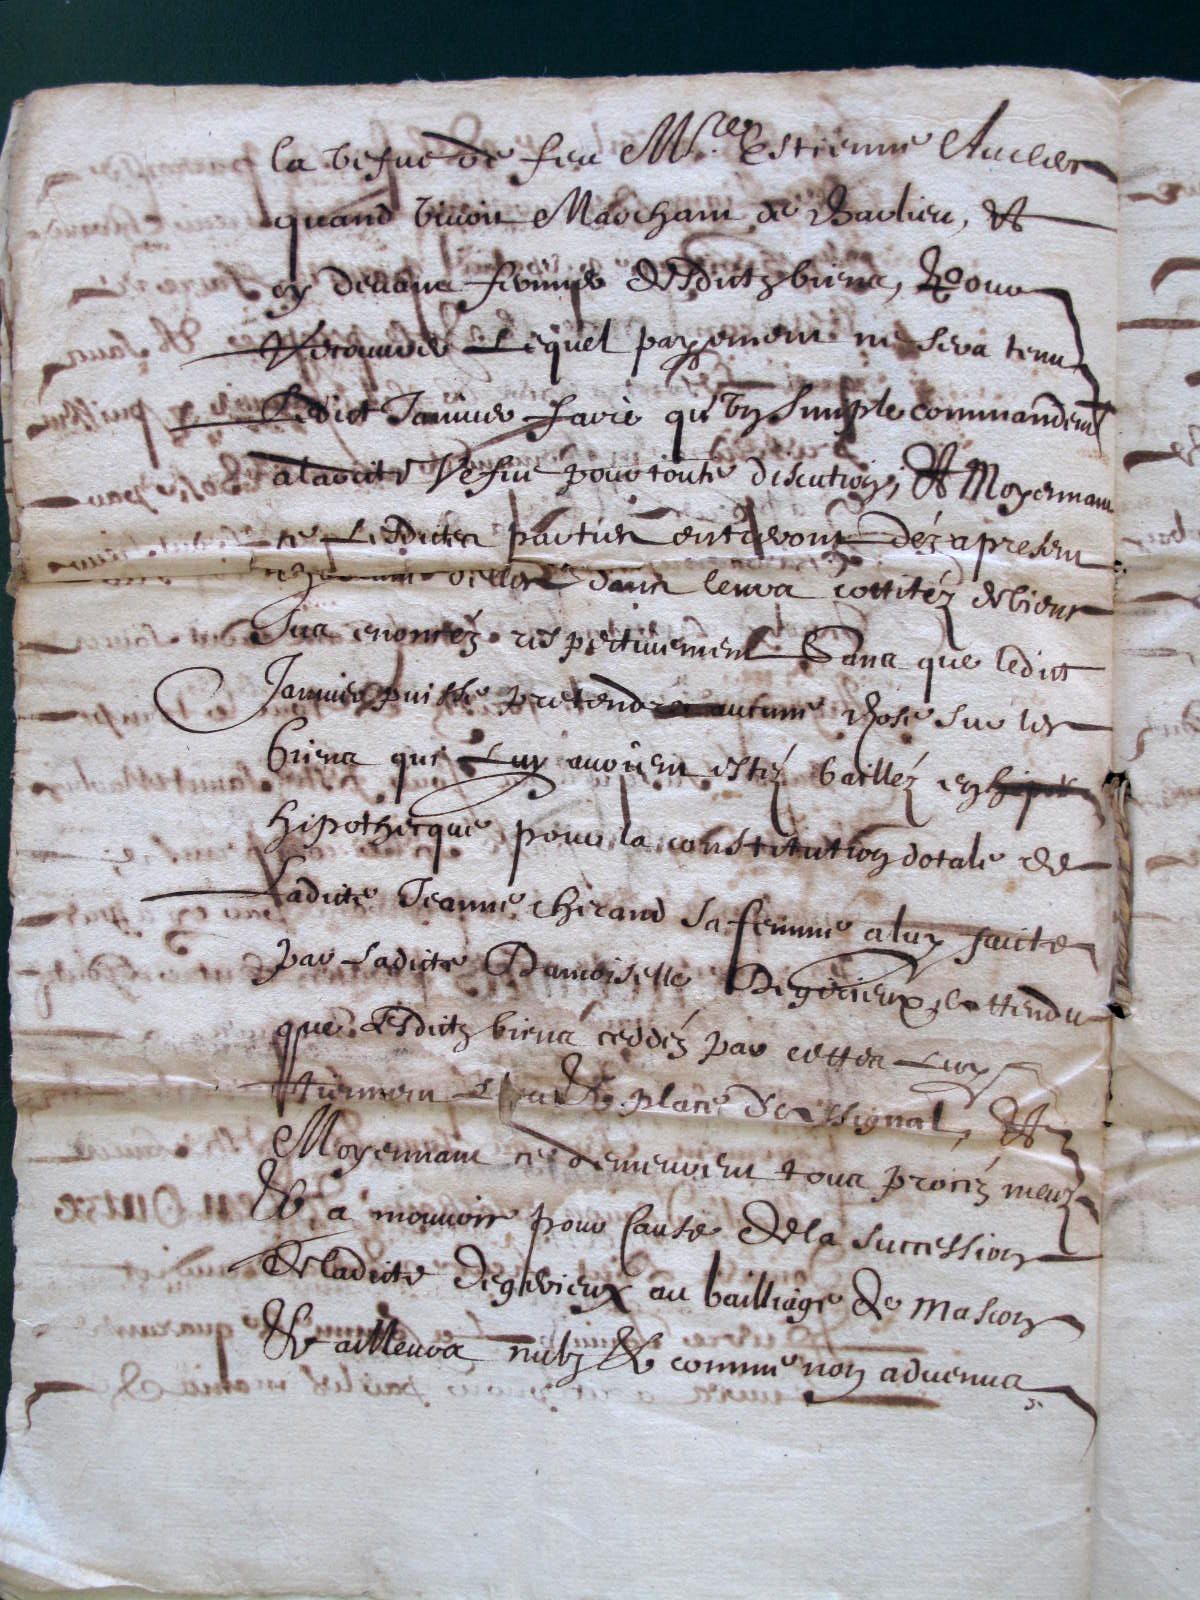 la vefue de feu Mre Estienne Aucler
quand viuoit Marchant de Charlieu, Et
cy deuant fermier desdictz biens, Pour
Recouurer Lequel payement ne sera tenu
Ledict Januier faire qu'vn simple commandemt
a ladicte Vefue pour toute discution, Et Moyennant
ce Lesdictes parties entreront dés apresent
dans leurs cottitéz de biens
sus enoncéz respectiuement Sans que ledict
Januier puisse pretendre aucune chose sur les
biens qui Luy auoient estéz bailléz en
hipothecque pour la constitution dotale de
Ladicte Jeanne cherand sa femme a luy faicte
par Ladicte Damoiselle Degrieux, attendu
que Lesdictz biens ceddéz par cettes Luy
tiennent Lieu & place d'essignal, Et
Moyennant ce demeurent tous procéz meuz
Et a mouuoir pour cause de la succession
de ladicte Degrieux au bailliage de Mascon
Et ailleurs nulz & comme non aduenus